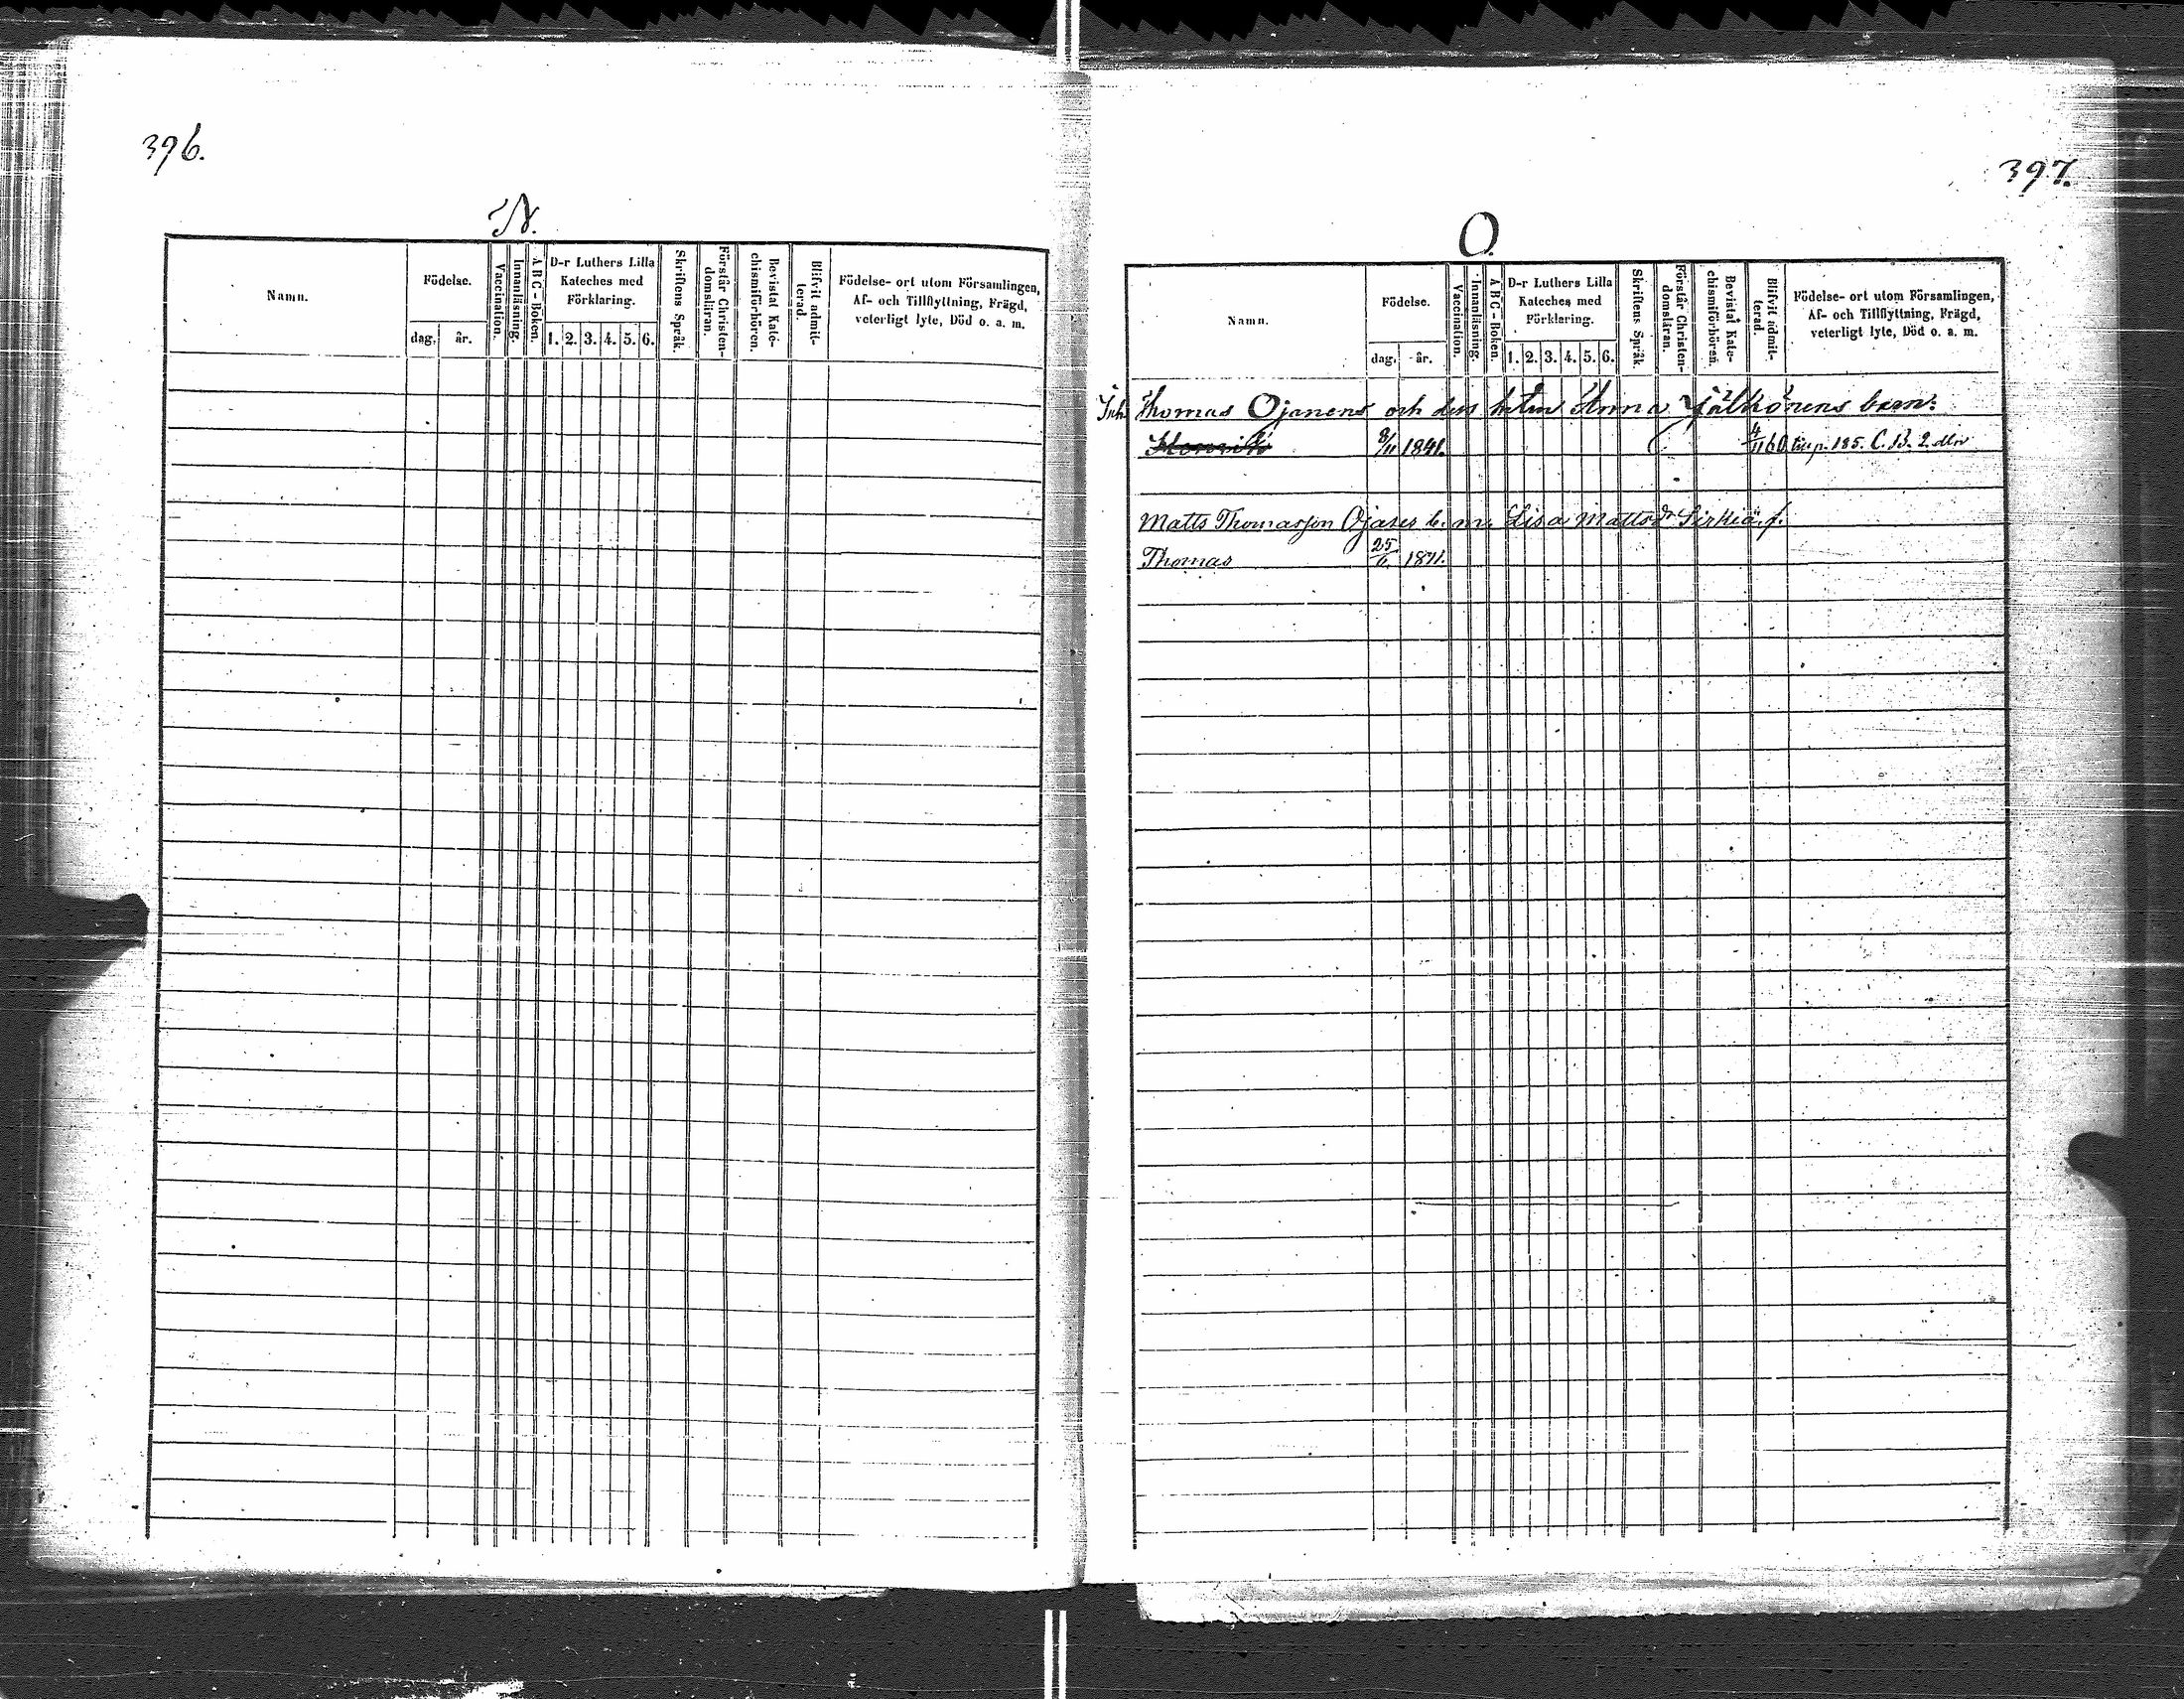 396.
N.
Namn.
Födelse.
dag. år.
Vaccination.
Innanläsning.
A B C - Boken.
D-r Luthers Lilla
Kateches med
Förklaring.
1. 2. 3. 4. 5. 6.
Skriftens Språk.
Förstår Christen-
domsläran.
Bevistat Kate-
chismiförhören.
Blifvit admit-
terad.
Födelse- ort utom Församlingen,
Af- och Tillflyttning, Frägd,
veterligt lyte, Död o. a. m.
397.
O.
Namn.
Födelse.
dag. år.
Vaccination.
Innanläsning.
A B C - Boken.
D-r Luthers Lilla
Kateches med
Förklaring.
1. 2. 3. 4. 5. 6.
Skriftens Språk.
Förstår Christen-
domsläran.
Bevistat Kate-
chismiförhören.
Blifvit admit-
terad.
Födelse- ort utom Församlingen,
Af- och Tillflyttning, Frägd,
veterligt lyte, Död o. a. m.
Inh. Thomas Ojanens och dess Anna barn:
8/11 1841. 4/11 60 p. 185. C. B. 2.
Matts Thomasson Ojases b. m. Lisa Mattsdr Sirkiä f.
Thomas 25/6. 1871.